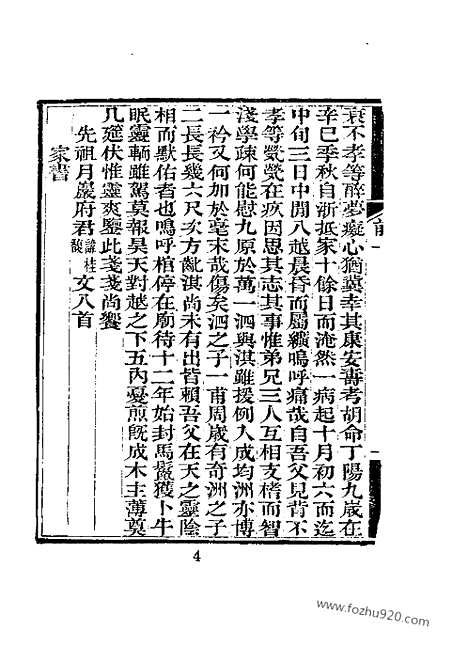 衰不孝等醉夢癡心猶冀幸其康安壽考胡命丁陽九歲在
辛巳季秋自浙抵家十餘日而淹然一病起十月初六而迄
中旬三日中閒八越晨昏而屬纊嗚呼痛哉自吾父見背不
孝等煢煢在疚因思其志其事惟弟兄三人互相支榰而智
淺學疎何能慰九原於萬一泗與淇雖援例入成均洲亦博
一衿又何加於毫末哉傷矣泗之子一甫周歲有奇洲之子
二長長幾六尺次方齓淇尚未有出皆賴吾父在天之靈陰
相而默佑者也嗚呼棺停在廟待十二年始封馬鬛獲卜牛
眠靈輀雖駕莫報昊天對越之下五內憂煎旣成木主薄奠
几筵伏惟靈爽鑒此戔戔尚饗
先祖月巖府君諱桂馥文八首
家書
4
www.fozhu920.com